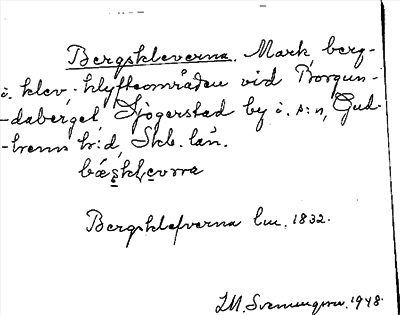 Bergskleverna. Mark, berg-
o. klev- klyfteområden vid Borgun-
-dabérget, Sjögerstad by i. s:n, Gud-
-hems hr:d, Skb. län.
bæsklevra
Bergsklefverna lm. 1832.
1948.